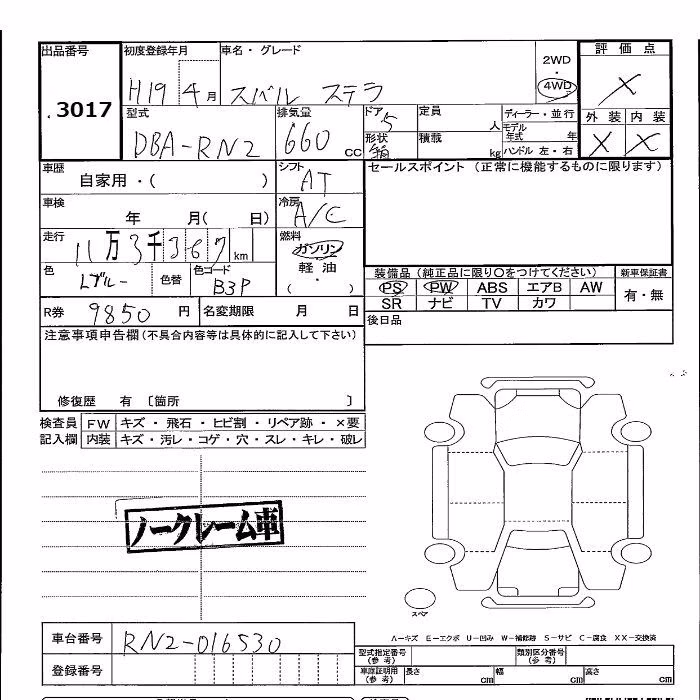 出品番号 初度登録年月 車名・グレード 2WD ・ 4WD 評価点
3017 H19 4月 スバル ステラ X
型式 排気量 ドア 定員 ディーラー・並行 外装 内装
DBA-RN2 660cc 5 人 モデル年式 年 X X
形状 箱 積載 kg ハンドル 左・右
車歴 自家用・( ) シフト AT セールスポイント (正常に機能するものに限ります)
車検 年 月( 日) 冷房 A/C
走行 11万3千367km 燃料 ガソリン
軽油
・
( )
色 Lブルー 色替 色コード B3P
装備品 (純正品に限り○をつけてください) 新車保証書
PS PW ABS エアB AW 有・無
SR ナビ TV カワ
R券 9850円 名変期限 月 日
後日品
注意事項申告欄(不具合内容等は具体的に記入して下さい)
修復歴 有 〔箇所 〕
検査員 FW キズ・飛石・ヒビ割・リペア跡・×要
記入欄 内装 キズ・汚レ・コゲ・穴・スレ・キレ・破レ
ノークレーム車
スペア
A-キズ E-エクボ U-凹み W-補修跡 S-サビ C-腐食 XX-交換済
車台番号 RN2-016530
型式指定番号 (参考) 類別区分番号 (参考)
登録番号
車庫証明用 (参考) 長さ cm 幅 cm 高さ cm